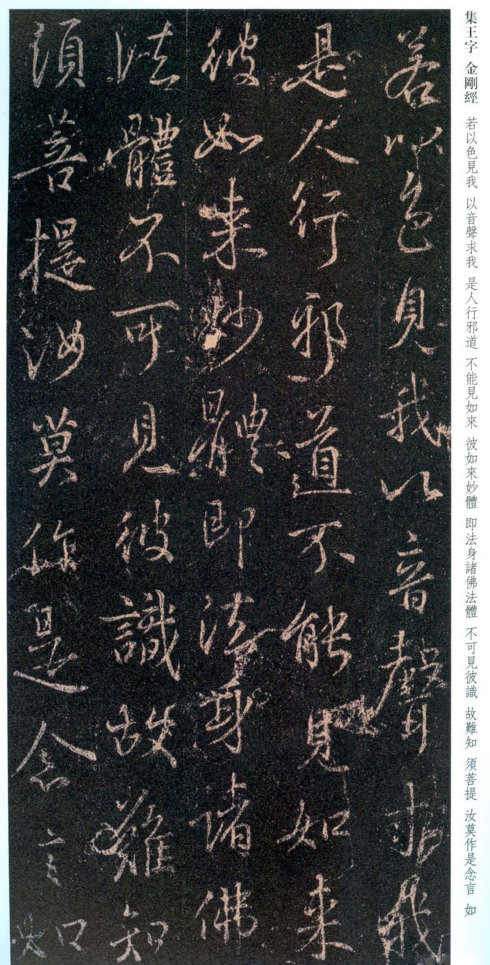 集王字 金剛經 若以色見我 以音聲求我 是人行邪道 不能見如來 彼如來妙體 即法身諸佛法體 不可見彼識 故難知 須菩提 汝莫作是念言 如
若以色見我以音聲求我
是人行邪道不能見如来
彼如来妙體即法身諸佛
法體不可見彼識故難知
須菩提汝莫作是念言如